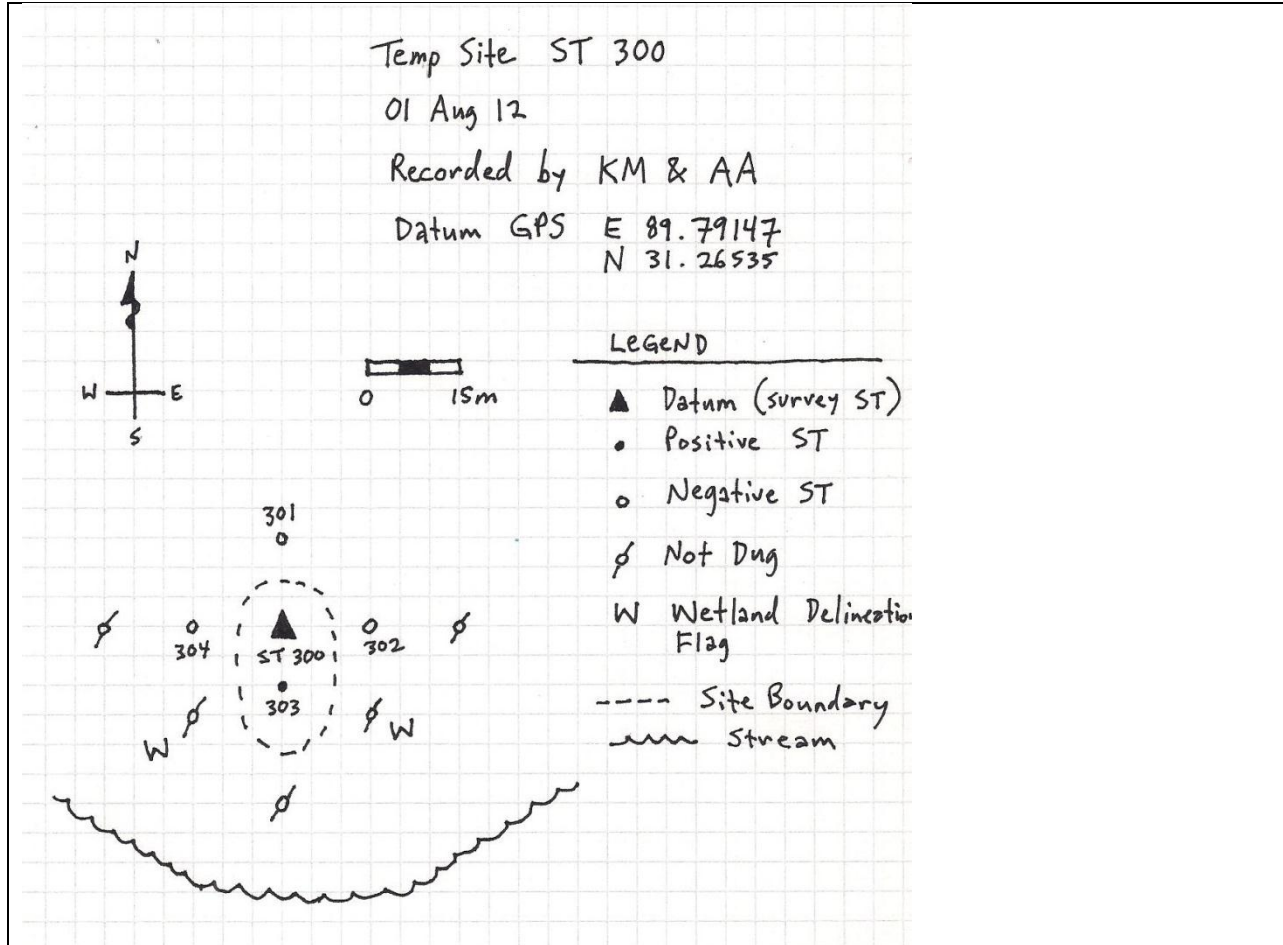 Temp Site ST 300
01 Aug 12
Recorded by KM & AA
Datum GPS E 89.79147
N 31.26535
N
W E
S
0 15m
LEGEND
Datum (survey ST)
Positive ST
Negative ST
Not Dug
W Wetland Delineation
Flag
Site Boundary
Stream
301
304
ST 300
302
303
W
W